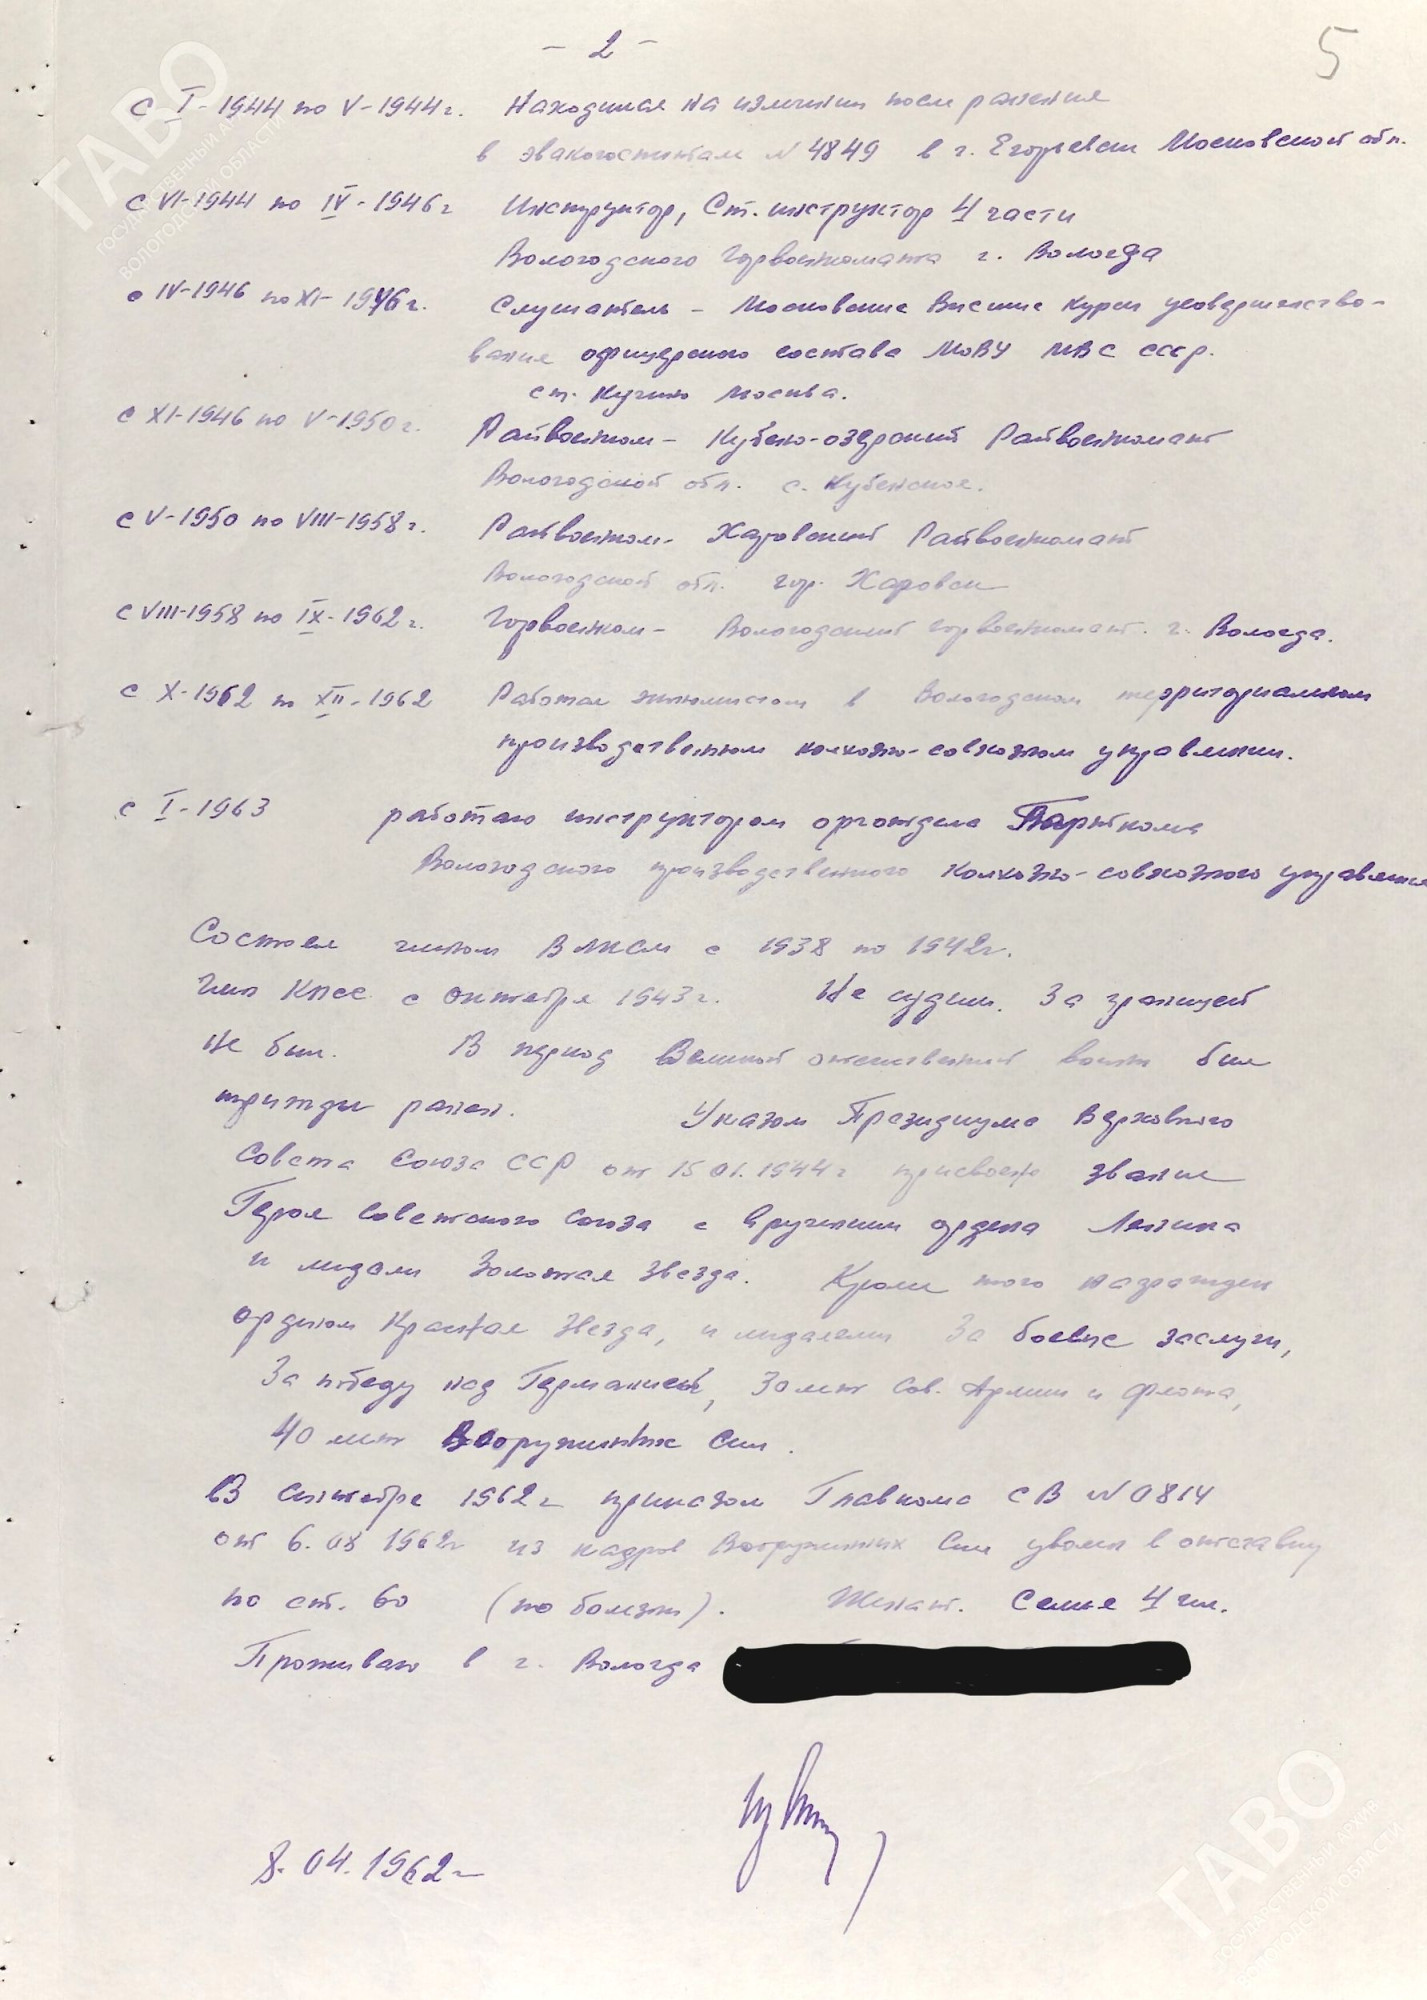 - 2 -
5
с I-1944 по V-1944 г. Находился на излечении после ранения
в эвакогоспитале № 4849 в г. Егорьевск Московской обл.
с VI-1944 по IV-1946 г Инструктор, Ст. инструктор 4 части
Вологодского Горвоенкомата г. Вологда
с IV-1946 по XI-1946 г. Слушатель - Московские Высшие Курсы усовершенство-
вания офицерского состава МВС СССР.
ст. Кучино Москва.
с XI-1946 по V-1950 г. Райвоенком - Кубено-озерский Райвоенкомат
Вологодской обл. с. Кубенское.
с V-1950 по VIII-1958 г. Райвоенком - Харовский Райвоенкомат
Вологодской обл. гор. Харовск
с VIII-1958 по IX-1962 г. Горвоенком - Вологодский горвоенкомат. г. Вологда.
с X-1962 по XII-1962 Работал экономистом в Вологодском территориальном
производственном колхозно-совхозном управлении.
с I-1963 работаю инструктором орготдела Парткома
Вологодского производственного колхозно-совхозного управления
Состоял членом ВЛКСМ с 1938 по 1942 г.
Член КПСС с октября 1943 г. Не судим. За границей
не был. В период Великой отечественной войны был
трижды ранен. Указом Президиума Верховного
Совета Союза ССР от 15.01.1944 г присвоено звание
Героя Советского Союза с вручением ордена Ленина
и медали Золотая Звезда. Кроме того награжден
орденом Красная Звезда, и медалями За боевые заслуги,
За победу над Германией, 30 лет Сов. Армии и флота,
40 лет Вооруженных Сил.
В сентябре 1962 г приказом Главкома СВ № 0814
от 6.08 1962 г из кадров Вооруженных Сил уволен в отставку
по ст. 60 (по болезни). Женат. Семья 4 чел.
Проживаю в г. Вологда
8.04.1962 г
ГАВО
ГОСУДАРСТВЕННЫЙ АРХИВ
ВОЛОГОДСКОЙ ОБЛАСТИ
ГАВО
ГОСУДАРСТВЕННЫЙ АРХИВ
ВОЛОГОДСКОЙ ОБЛАСТИ